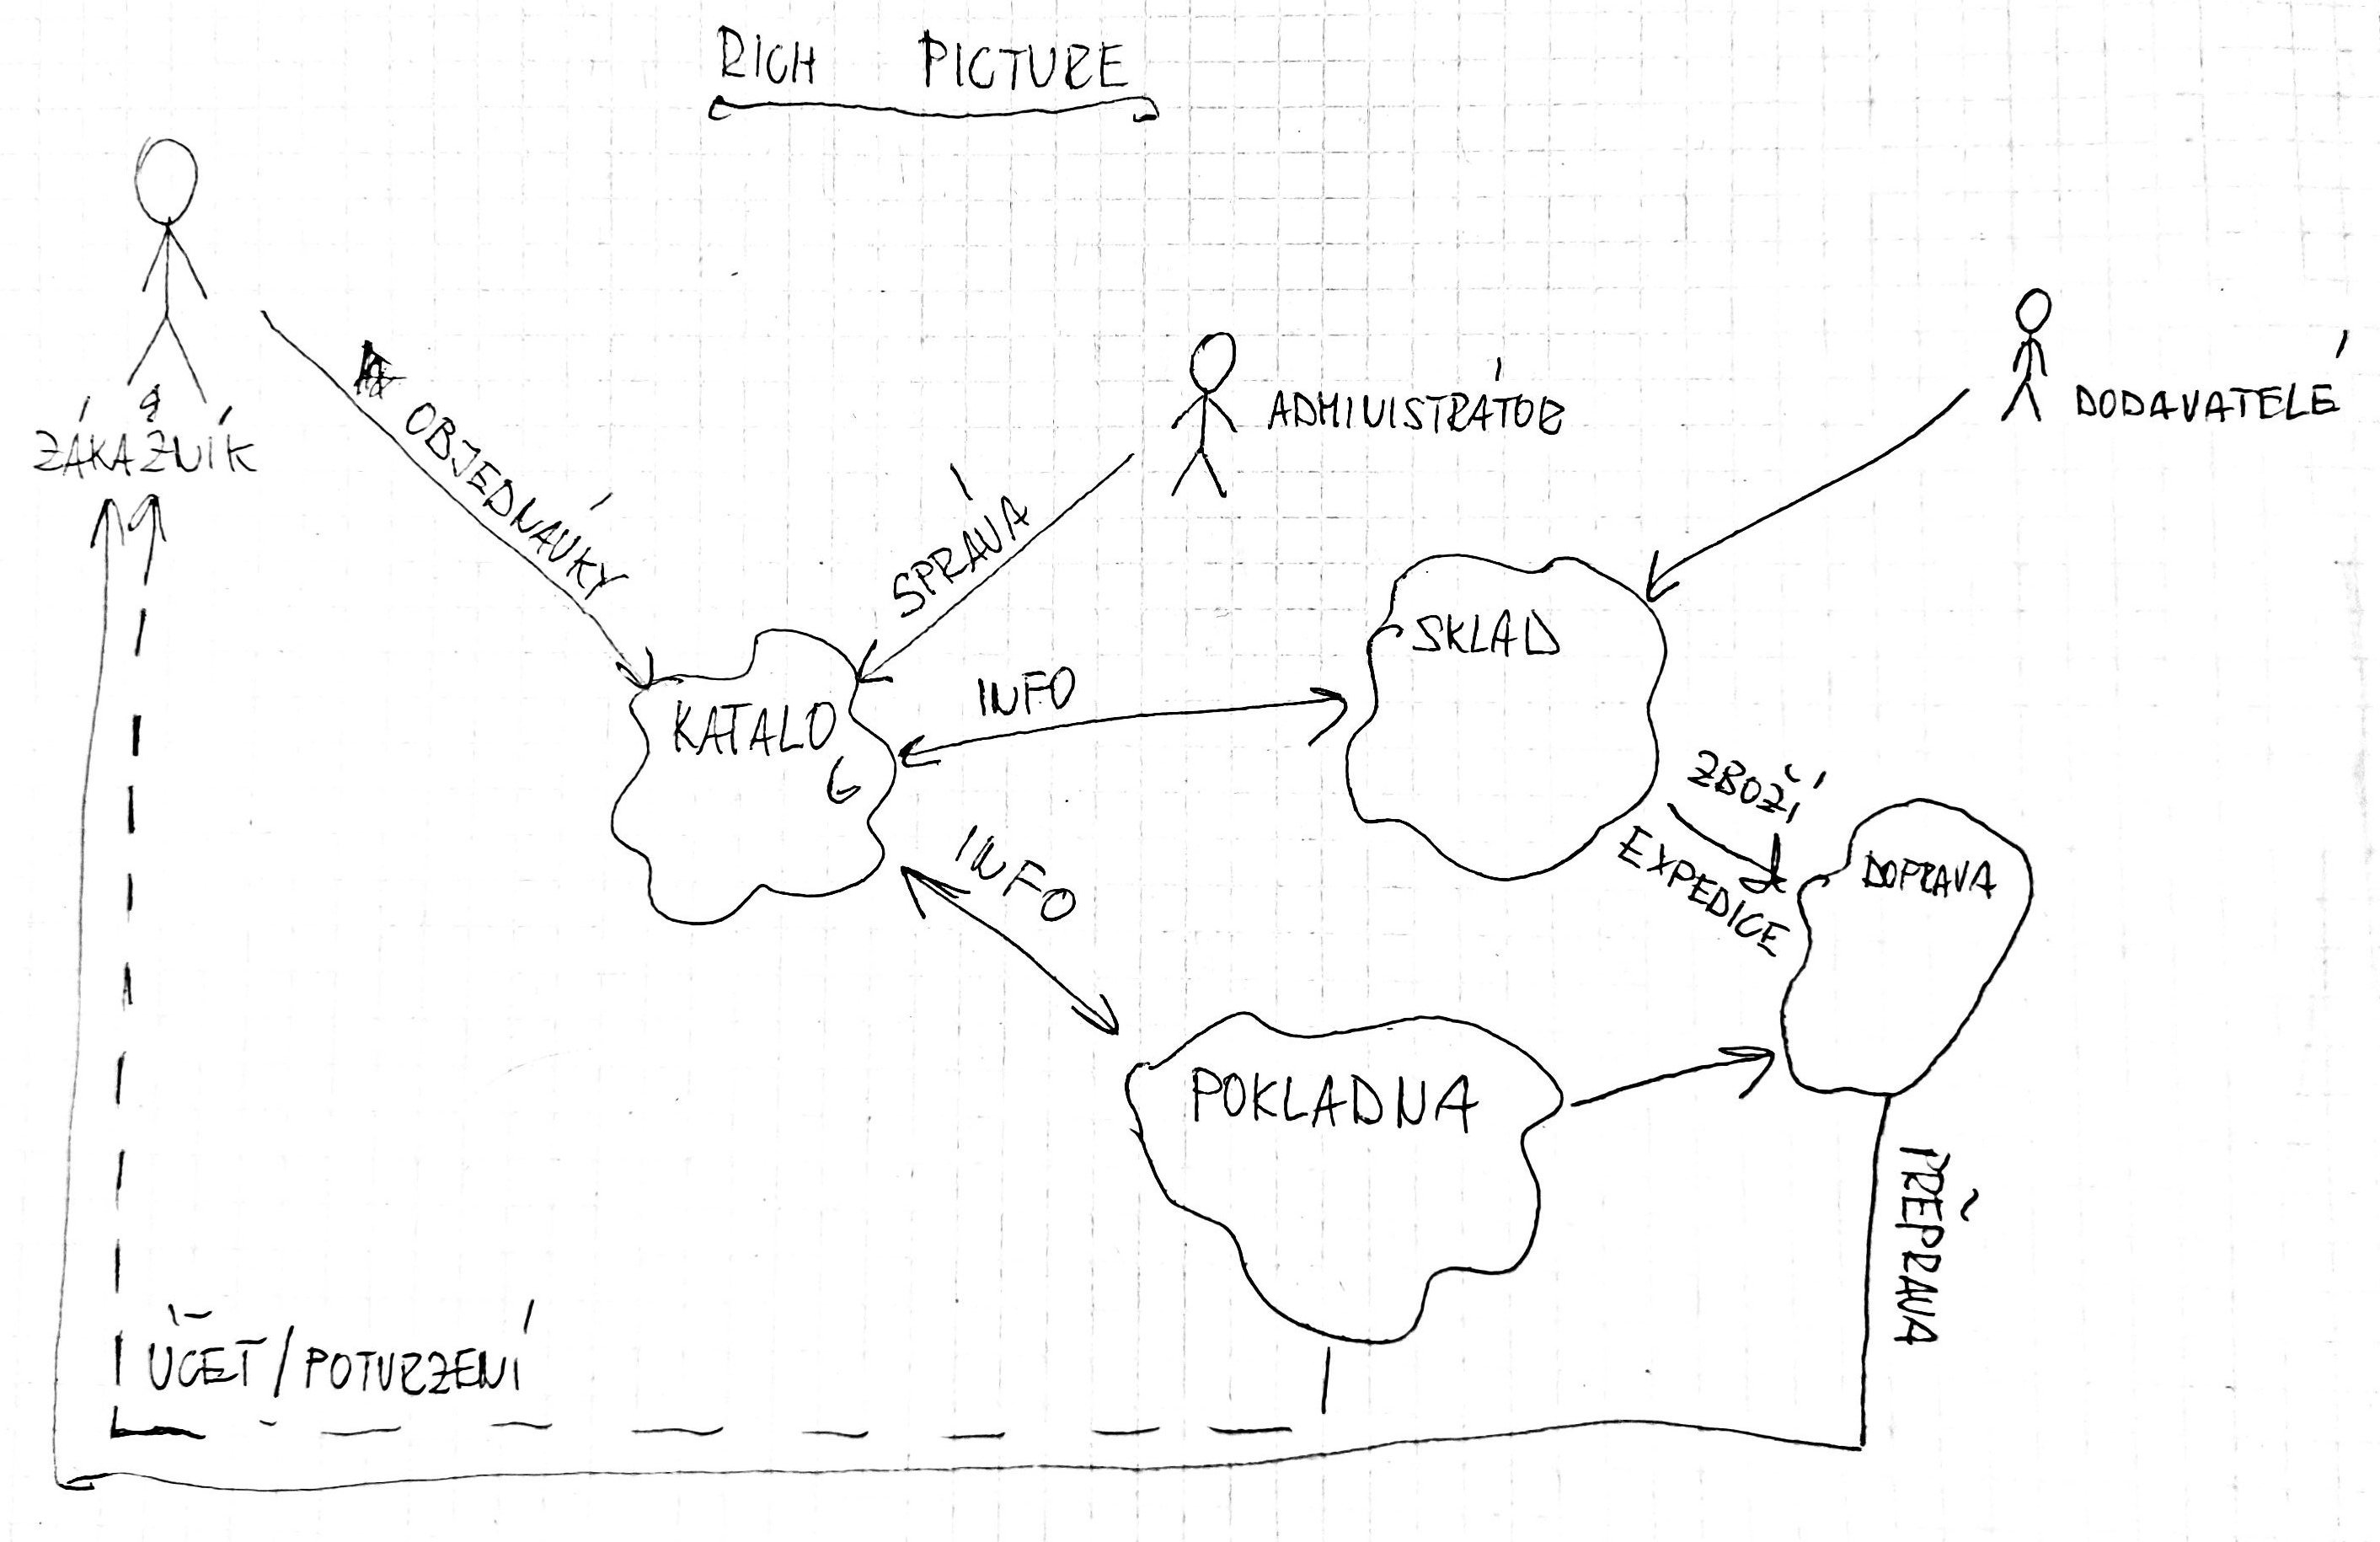 RICH PICTURE
ZÁKAZNÍK
OBJEDNÁVKY
ADMINISTRÁTOR
DODAVATELÉ
SPRÁVA
SKLAD
INFO
KATALO
G
ZBOŽÍ
EXPEDICE
DOPRAVA
INFO
POKLADNA
PŘEPRAVA
ÚČET/POTVRZENÍ